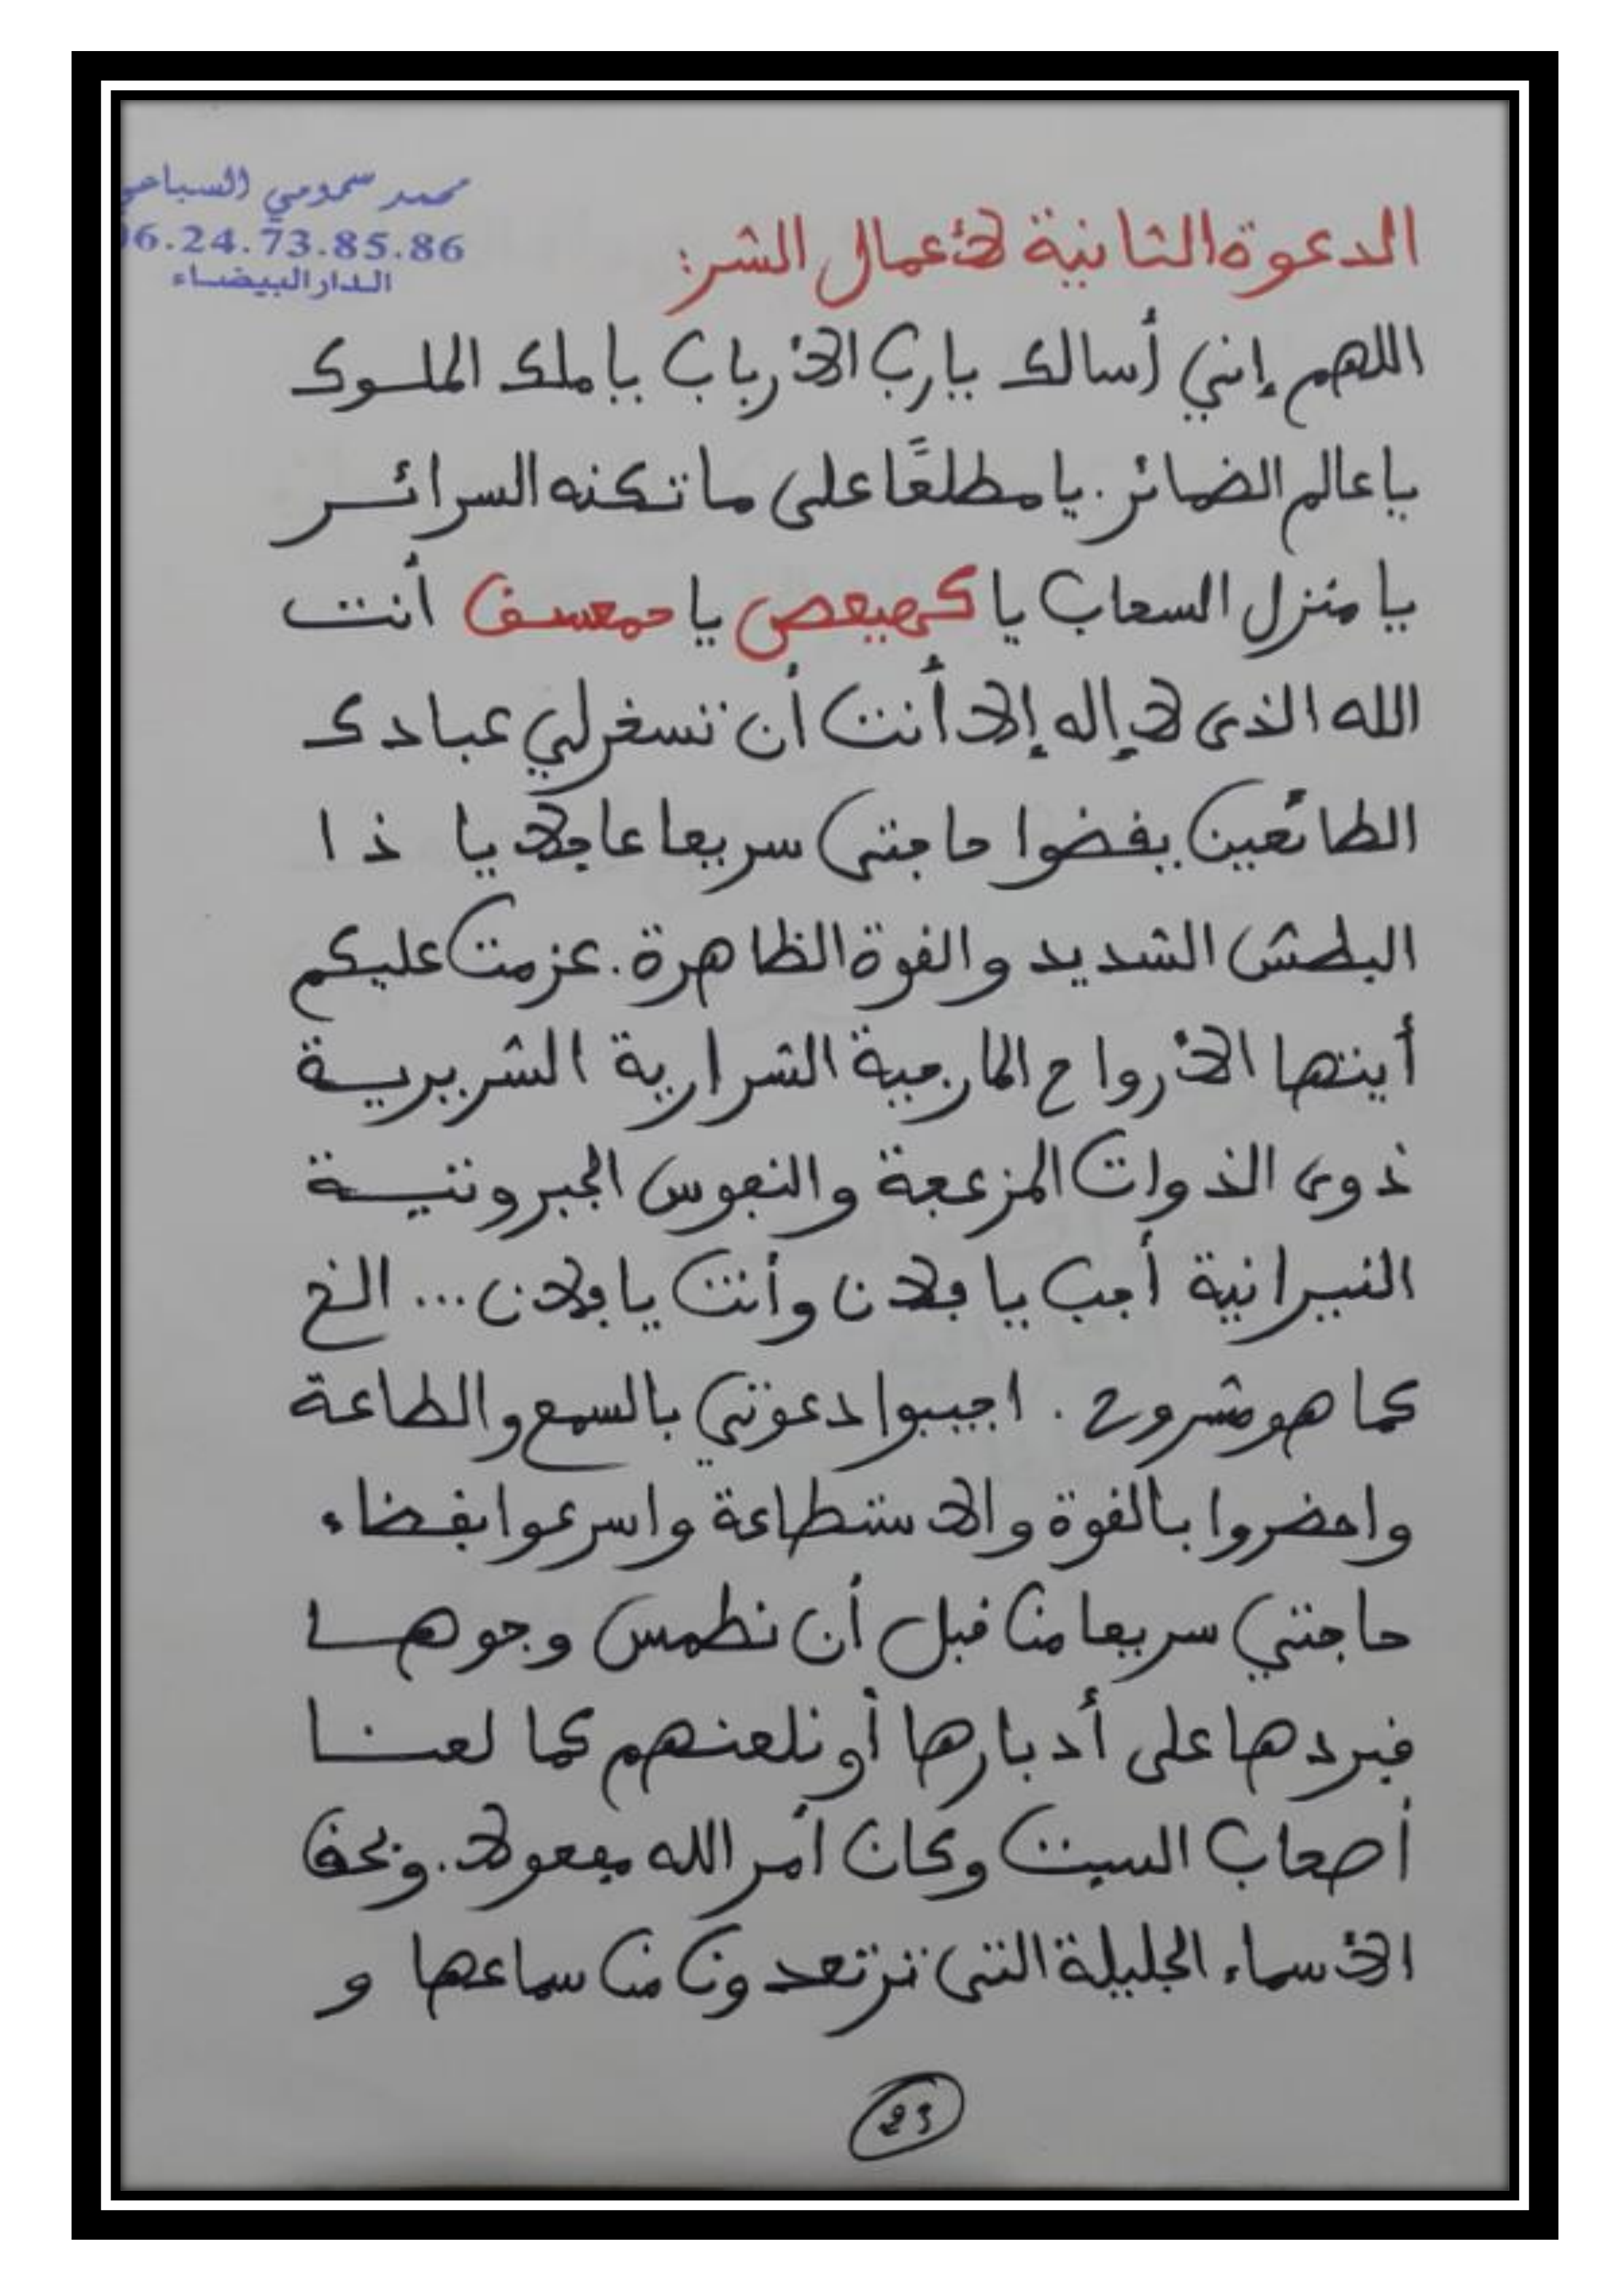 محمد سمومي السباعي
06.24.73.85.86
الدار البيضاء
الدعوة الثانية لأعمال الشر:
اللهم إنني أسالك يا رب الأرباب يا ملك الملوك
يا عالم الضمائر. يا مطلعًا على ما تكنه السرائر
يا منزل السحاب يا كهيعص يا حمعسق أنت
الله الذى لا إله إلا أنت أن تسخر لي عبادك
الطائعين يقضوا حاجتى سريعا عاجلا يا ذا
البطش الشديد والقوة الظاهرة. عزمت عليكم
أيتها الأرواح المارجية الشرارية الشريرية
ذوى الذوات المزعجة والنفوس الجبروتية
النيرانية أجب يا فلان وأنت يا فلان... الخ
كما هو مشروح. اجيبوا دعوتي بالسمع والطاعة
واحضروا بالقوة والاستطاعة واسرعوا بقضاء
حاجتي سريعا من قبل أن نطمس وجوها
فنردها على أدبارها أو نلعنهم كما لعنا
أصحاب السبت وكان أمر الله مفعولا. وبحق
الأسماء الجليلة التى ترتعدون من سماعها و